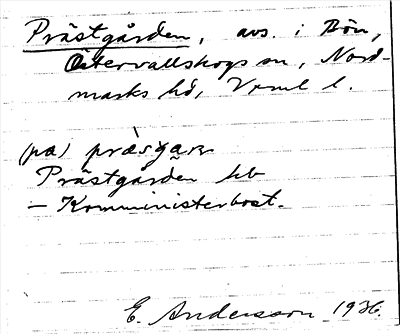 Prästgården, avs. i Bön,
Östervallskogs sn, Nord-
marks hd, Vrml l.
(pa) præ̀sgaɳ
Prästgården hb
– Komministerbost.
E. Andersson 1936.